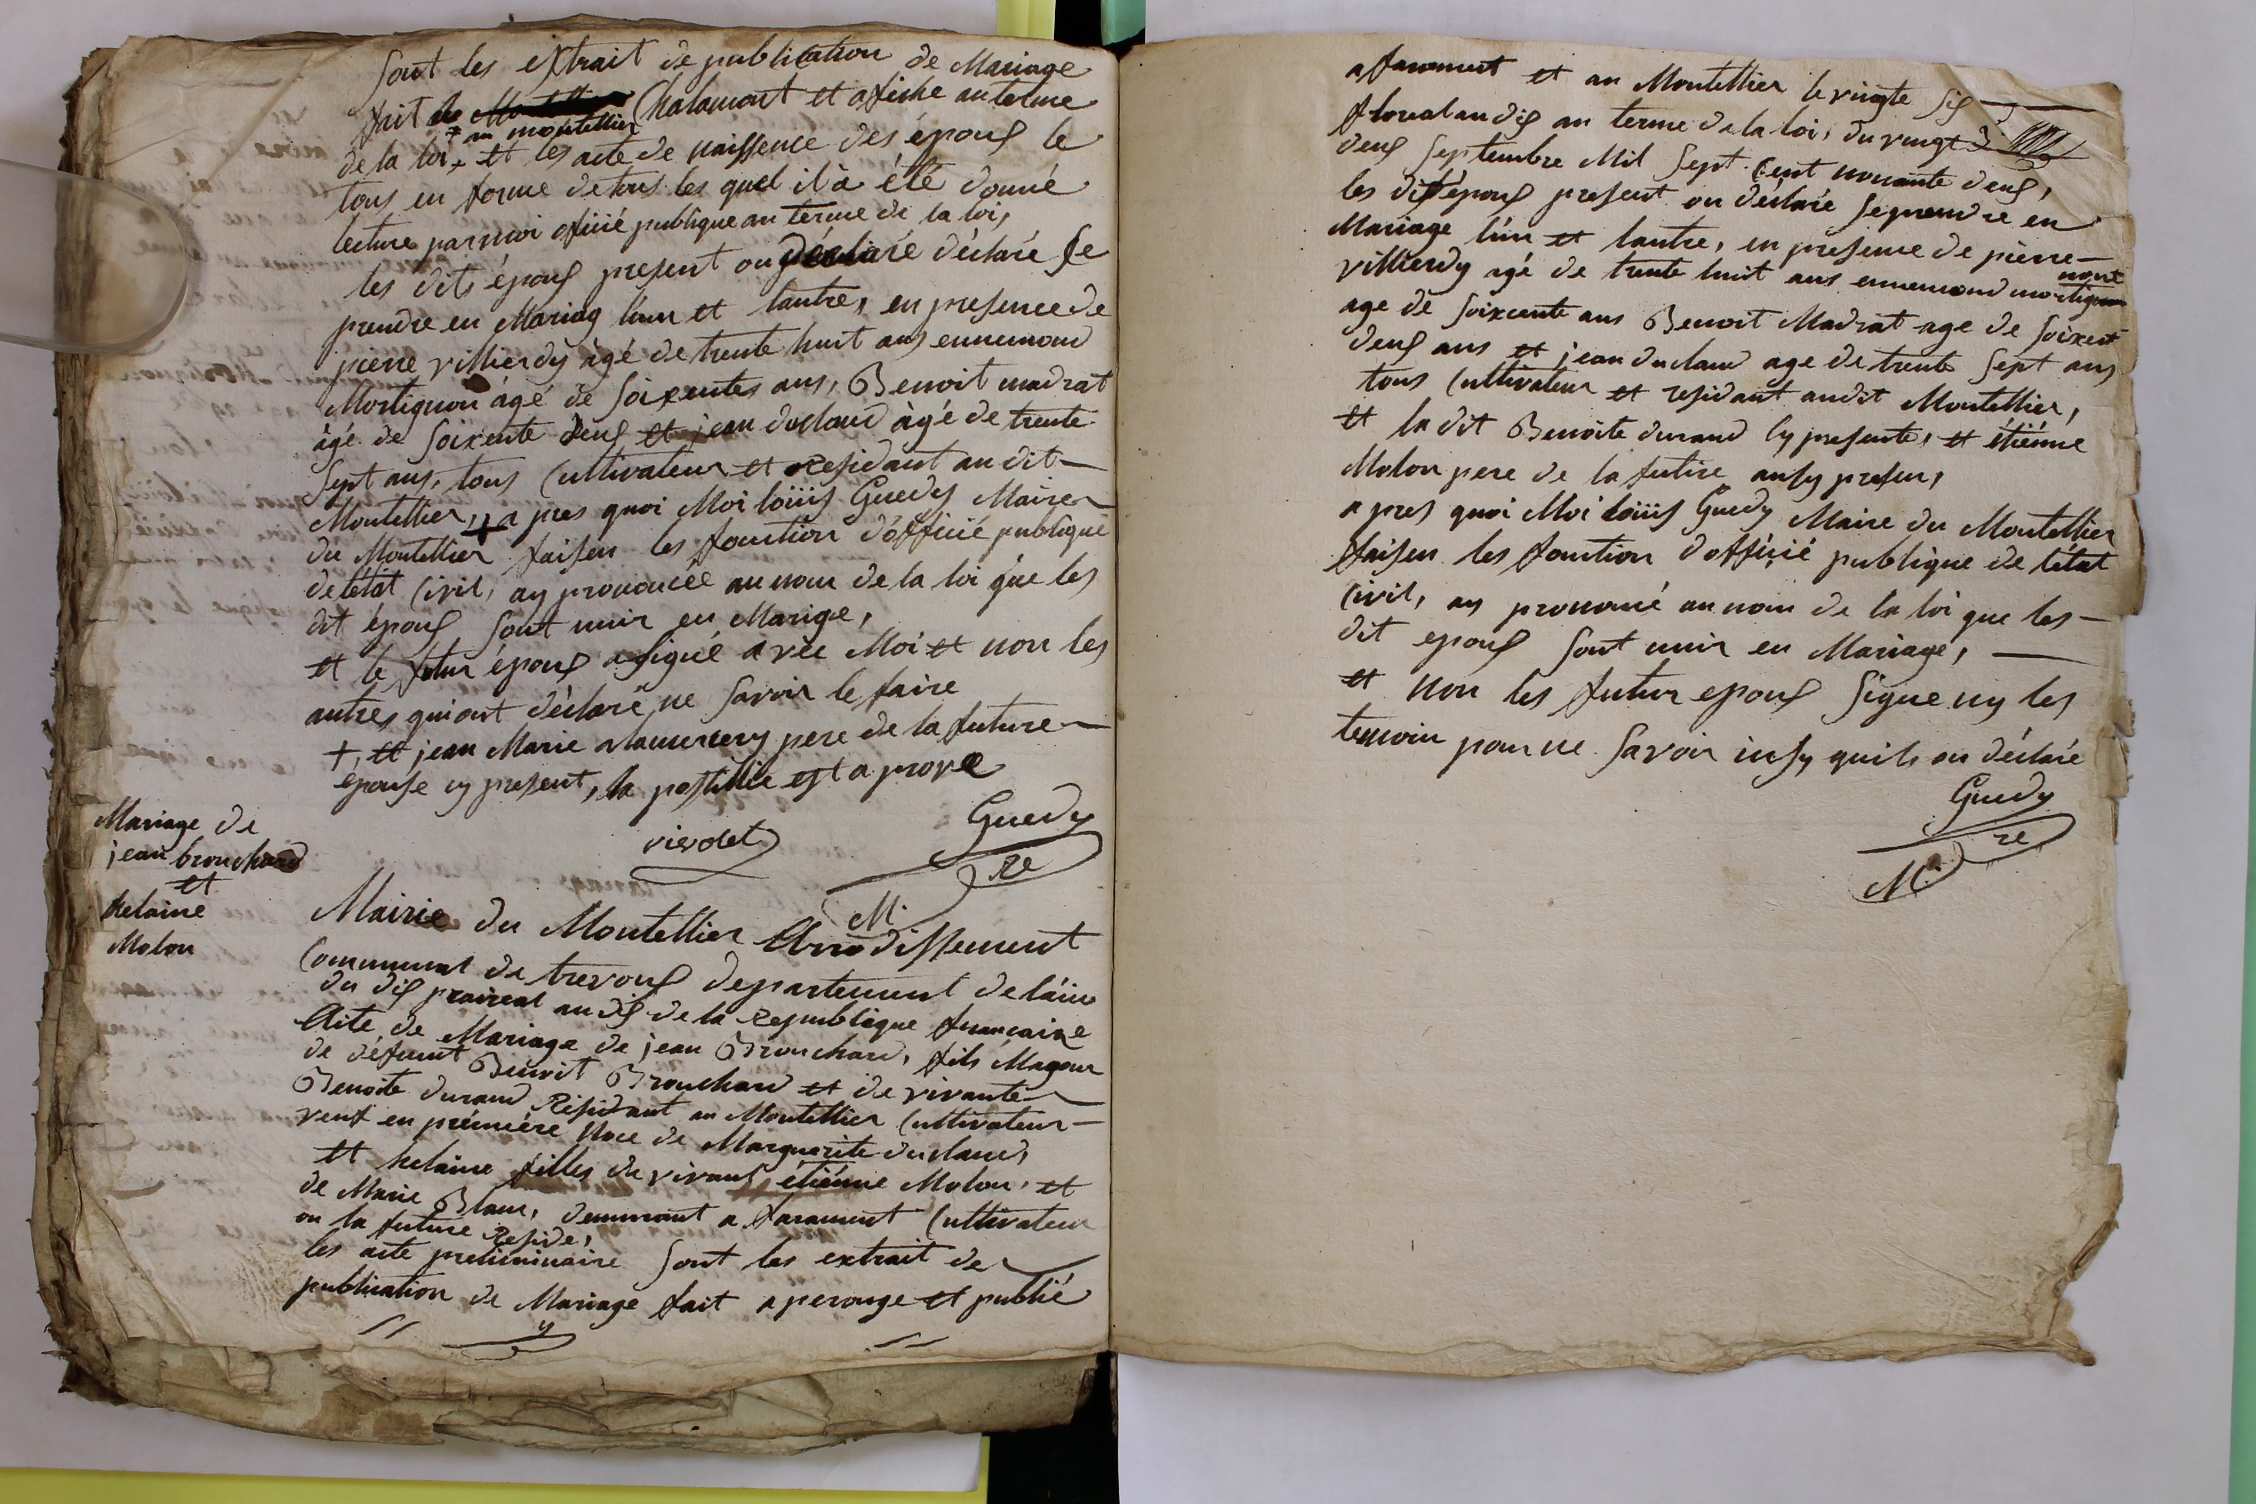 Sont les extrait de publication de Mariage
fait de Chalamont et afiché au terme
+ au montellier
de la loi, + et les acte de naissence des époux le
tous en forme de tous les quel il à été donné
lecture par moi oficié publique au terme de la loi,
les dits époux present on déclaré déclaré se
prendre en Mariag l'un et lautre, en presence de
pierre villierdy âgé de trente huit ans ennemond
Mortignon âgé de soixentes ans, Benoit madrat
âgé de soixente deux et jean duclaud âgé de trente
sept ans, tous Cultivateur et residant au dit
Montellier, + a pres quoi Moi loüis Guedy Maire
du Montellier faisen les fonction d'officié publique
de létat Civil, ay prononcée au nom de la loi que les
dit époux sont unir en Marige,
et le futur époux a signé avec Moi et non les
autres qui ont déclaré ne savoir le faire
+, et jean Marie alamercery pere de la future
épouse cy present, la postillie est aprové
viorolet
Guedy
re
M.
Mariage de
jean brouchard
et
helaine
Molon
Mairie du Montellier Arrodissement
Communal de trevoux departement de láin
du dix prairial an dix de la Republique francaise
Acte de Mariage de jean Brouchard, fils Mageur
de défunt Benoit Brouchard et de vivante
Benoite durand Résidant au Montellier Cultivateur
veuf en prémiére Noce de Marguerite duclaud,
et helaine filles de vivant étiénne Molon, et
de Marie Blanc, demurant a faramant Cultivateur
ou la future Reside,
les acte preliminaire sont les extrait de
publication de Mariage fait a perouge et publié
a faramant et au Montellier le vingte six
floreal an dix au terme de la loi, du vingt
deux septembre Mil sept Cent nonante deux,
les dit époux present on déclaré se prendre en
Mariage l'un et lautre, en presence de pierre
villierdy agé de trente huit ans ennemond mortignon
age de soixcente ans Benoit Madrat age de soixent
deux ans et jean duclaud age de trente sept ans
tous Cultivateur et residant audit Montellier,
et la dit Benoite durand Cy presente, et étiénne
Molon pere de la future ausy presen,
a pres quoi Moi loüis Guedy Maire du Montellier
faisen les fonction d'officié publique de létat
Civil, ay prononcé au nom de la loi que les
dit epoux sont unir en Mariage,
et non les futur epoux signe ny les
temoin pour ne savoir insy quils on déclaré
Guedy
re
M.